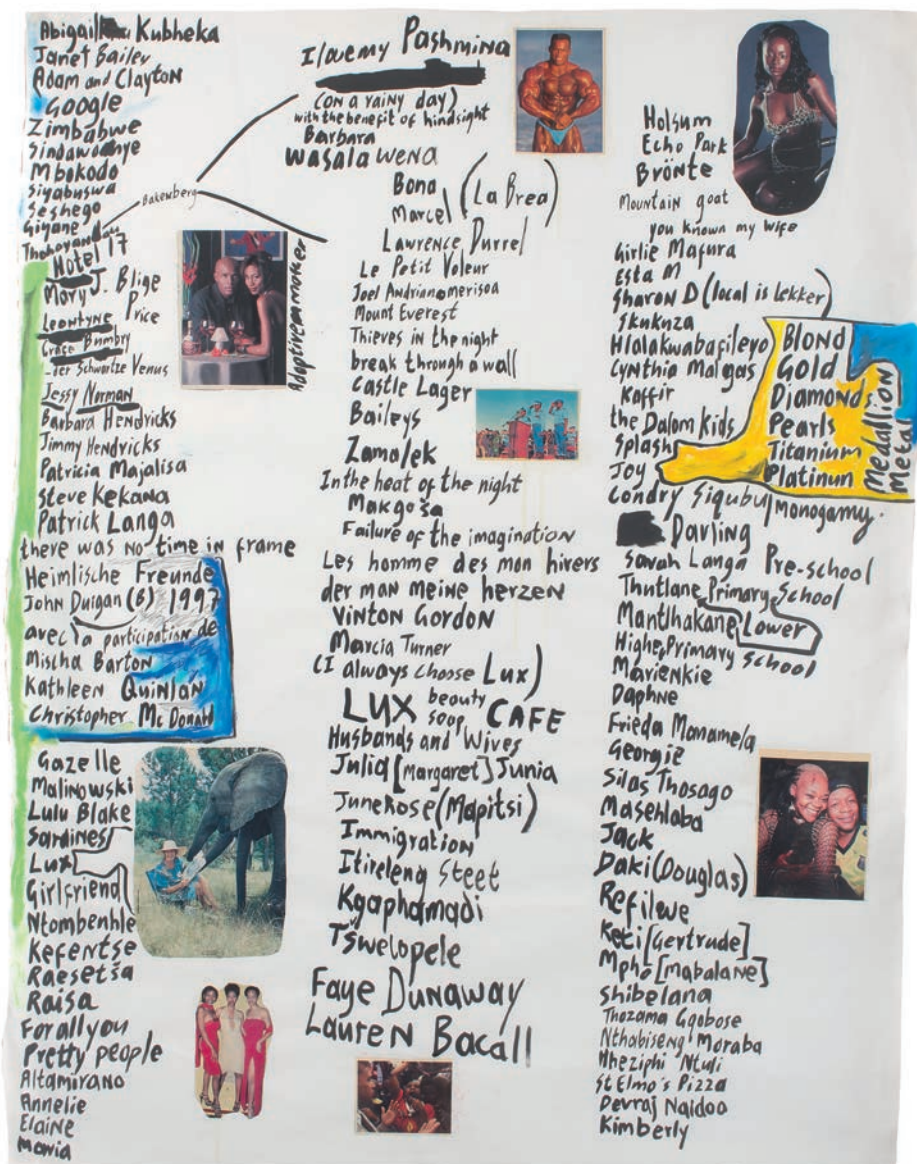 Abigail Kubheka
Janet Bailey
Adam and Clayton
Google
Zimbabwe
Sindawonye
Mbokodo
Siyabuswa
Seshego
Giyane
Thohoyandou
Hotel 17
Mary J. Blige
Leontyne Price
Grace Bumbry
-der Schwartze Venus
Jessy Norman
Barbara Hendricks
Jimmy Hendricks
Patricia Majalisa
Steve Kekana
Patrick Langa
there was no time in frame
Heimlische Freunde
John Duigan (B) 1997
avec la participation de
Mischa Barton
Kathleen Quinlan
Christopher McDonald
Gazelle
Malinowski
Lulu Blake
Sardines
Lux
Girlfriend
Ntombenhle
Kefentse
Raesetša
Raisa
For all you
Pretty people
Altamirano
Annelie
Elaine
Maria
Bakenberg
Adoptive mother
I love my Pashmina
(on a rainy day)
with the benefit of hindsight
Barbara
wasala wena
Bona
Marcel (La Brea)
Lawrence Durrel
Le Petit Voleur
Joel Andrianomerisoa
Mount Everest
Thieves in the night
break through a wall
Castle Lager
Baileys
Zamalek
In the heat of the night
Makgoša
Failure of the imagination
Les homme des mon hivers
der man meine herzen
Vinton Gordon
Marcia Turner
(I always choose Lux)
LUX beauty soap CAFE
Husbands and Wives
Julia [Margaret] Junia
June Rose (Mapitsi)
Immigration
Itireleng Steet
Kgaphamadi
Tšwelopele
Faye Dunaway
Lauren Bacall
Holsum
Echo Park
Brönte
Mountain goat
you known my wife
Girlie Mafura
Esta M
Sharon D (local is lekker)
Skukuza
Hlalakwabafileyo
Cynthia Malgas
Kaffir
the Dalom Kids
Splash
Joy
Condry Siqubu
Monogamy.
Blond
Gold
Diamonds
Pearls
Titanium
Platinum
Medallion
Metal
Darling
Sarah Langa Pre-school
Thutlane Primary School
Mantlhakane Lower
Higher Primary School
Marienkie
Daphne
Frieda Mamamela
Georgie
Silas Thosago
Masehlaba
Jack
Daki (Douglas)
Refilwe
Keti [Gertrude]
Mpho [mabalane]
Shibelana
Thozama Gqobose
Nthabiseng Moraba
Nheziphi Ntuli
St Elmo's Pizza
Devraj Naidoo
Kimberly